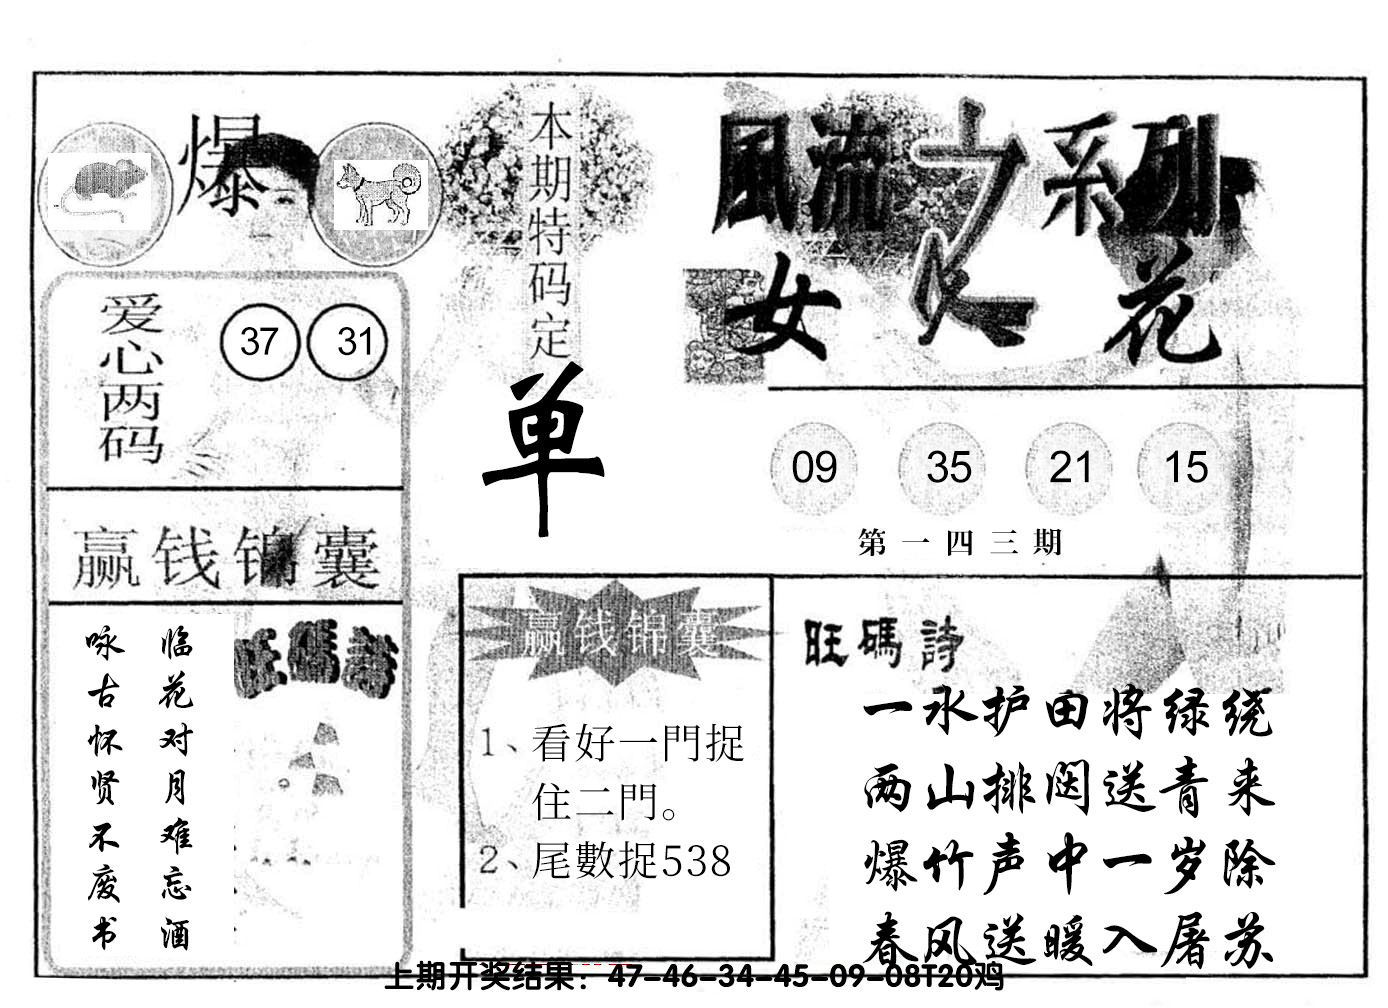 爆
爱心两码
37 31
赢钱锦囊
临花对月难忘酒
咏古怀贤不废书
旺碼詩
本期特码定
单
風流之系列
女人花
09 35 21 15
第一四三期
赢钱锦囊
1、看好一門捉
住二門。
2、尾數捉538
旺碼詩
一水护田将绿绕
两山排闼送青来
爆竹声中一岁除
春风送暖入屠苏
上期开奖结果：47-46-34-45-09-08T20鸡